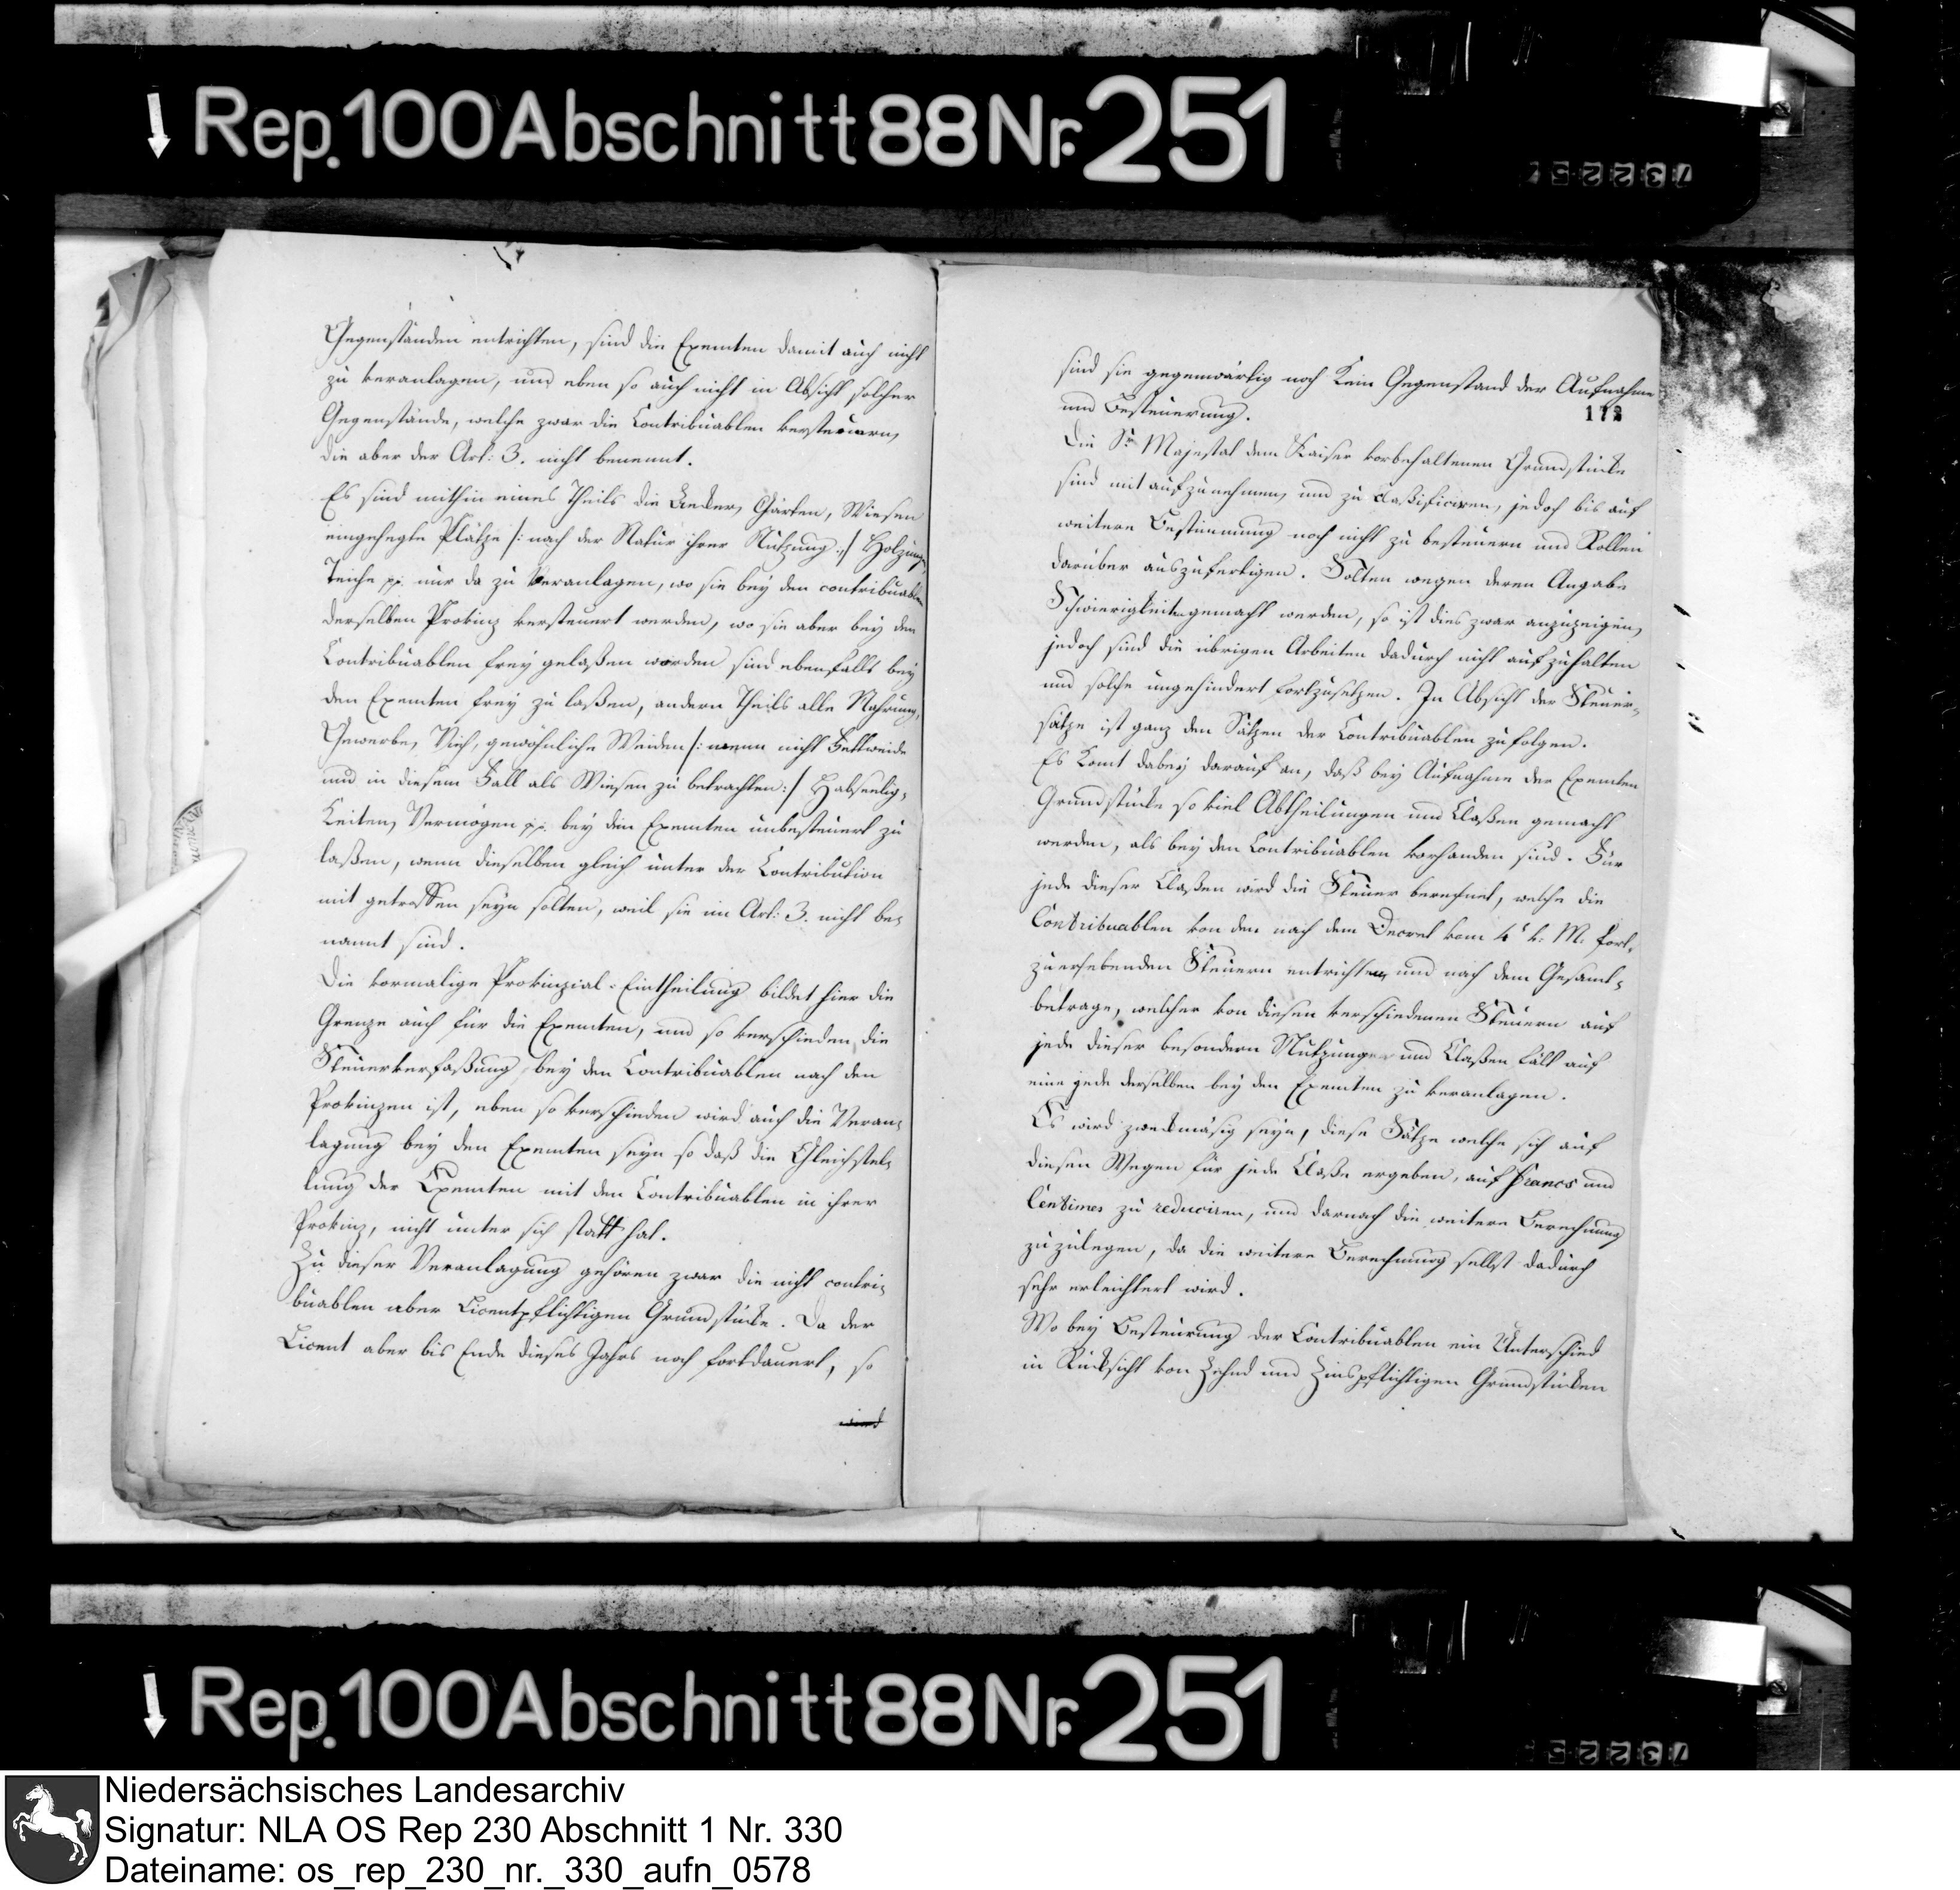 Rep. 100 Abschnitt 88 Nr. 251
73225
Gegenständen entrichten, sind die Exemten damit auch nicht
zu veranlagen, und eben so auch nicht in Absicht solcher
Gegenstände, welche zwar die Contribuablen versteuern,
die aber der Art: 3. nicht benennt.
Es sind mithin eines Theils die Aecker, Gärten, Wiesen
eingehegte Plätze /: nach der Natur ihrer Nutzung :/ Holzung,
Teiche pp. nur da zu Veranlagen, wo sie bey den contribuablen
derselben Provinz versteuert werden, wo sie aber bey den
Contribuablen frey gelaßen worden sind ebenfalls bey
den Exemten frey zu laßen, andern Theils alle Nahrung,
Gewerbe, Vieh, gewöhnliche Weiden /: wenn nicht Fettweide
und in diesem Fall als Wiesen zu betrachten :/ Habseelig-
keiten, Vermögen pp. bey den Exemten unbesteuert zu
laßen, wenn dieselben gleich unter der Contribution
mit getroffen seyn solten, weil sie im Art: 3. nicht be-
nannt sind.
Die vormalige Provinzial-Eintheilung bildet hier die
Grenze auch für die Exemten, und so verschieden die
Steuerverfaßung bey den Contribuablen nach den
Provinzen ist, eben so verschieden wird auch die Veran-
lagung bey den Exemten seyn so daß die Gleichstel-
lung der Exemten mit den Contribuablen in ihrer
Provinz, nicht unter sich statt hat.
Zu dieser Veranlagung gehören zwar die nicht contri-
buablen aber Licentpflichtigen Grundstücke. Da der
Licent aber bis Ende dieses Jahrs noch fortdauert, so
sind sie gegenwärtig noch kein Gegenstand der Aufnahme
172
und Besteuerung.
Die Sr. Majestät dem Kaiser vorbehaltenen Grundstücke
sind mit aufzunehmen, und zu claßificiren, jedoch bis auf
weitere Bestimmung noch nicht zu besteuern und Rollen
darüber auszufertigen. Solten wegen deren Angabe
Schwierigkeiten gemacht werden, so ist dies zwar anzuzeigen,
jedoch sind die übrigen Arbeiten dadurch nicht aufzuhalten
und solche ungehindert fortzusetzen. In Absicht der Steuer-
sätze ist ganz den Sätzen der Contribuablen zu folgen.
Es komt dabey darauf an, daß bey Aufnahme der Exemten
Grundstücke so viel Abtheilungen und Claßen gemacht
werden, als bey den Contribuablen vorhanden sind. Für
jede dieser Claßen wird die Steuer berechnet, welche die
Contribuablen von den nach dem Decret vom 4t v. M. fort-
zuerhebenden Steuern entrichten, und nach dem Gesamt-
betrage, welcher von diesen verschiedenen Steuern auf
jede dieser besondern Nutzungen und Claßen fält auf
eine jede derselben bey den Exemten zu veranlagen.
Es wird zweckmäsig seyn, diese Sätze welche sich auf
diesen Wegen für jede Claße ergeben, auf Francs und
Centimes zu reduciren, und darnach die weitere Berechnung
zuzulegen, da die weitere Berechnung selbst dadurch
sehr erleichtert wird.
Wo bey Besteurung der Contribuablen ein Unterschied
in Rücksicht von Zehnd und Zinspflichtigen Grundstücken
Rep. 100 Abschnitt 88 Nr. 251
73225
Niedersächsisches Landesarchiv
Signatur: NLA OS Rep 230 Abschnitt 1 Nr. 330
Dateiname: os_rep_230_nr._330_aufn_0578